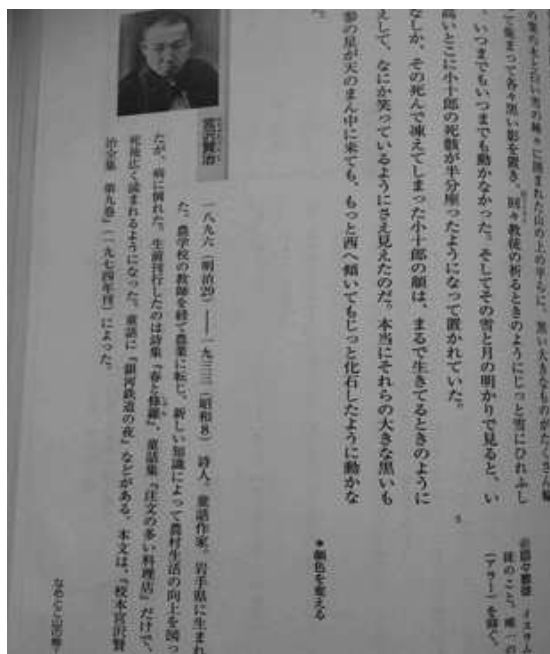 の栗の木と白い雪の峰々に囲まれた山の上の平らに、黒い大きなものがたくさん
て集まって各々黒い影を置き、回々教徒の祈るときのようにじっと雪にひれふし
、いつまでもいつまでも動かなかった。そしてその雪と月の明かりで見ると、い
高いとこに小十郎の死骸が半分座ったようになって置かれていた。
なしか、その死んで凍えてしまった小十郎の顔は、まるで生きてるときのように
えして、なにか笑っているようにさえ見えたのだ。本当にそれらの大きな黒いも
参の星が天のまん中に来ても、もっと西へ傾いてもじっと化石したように動かな
。
5
回々教徒 イスラム
徒のこと。唯一の
(アラー)を仰ぐ。
*顔色を変える
宮沢賢治
一八九六(明治29)――一九三三(昭和8) 詩人。童話作家。岩手県に生まれ
た。農学校の教師を経て農業に転じ、新しい知識によって農村生活の向上を図っ
たが、病に倒れた。生前刊行したのは詩集『春と修羅』、童話集『注文の多い料理店』だけで、
死後広く読まれるようになった。童話に『銀河鉄道の夜』などがある。本文は、『校本宮沢賢
治全集 第九巻』(一九七四年刊)によった。
なめとこ山の